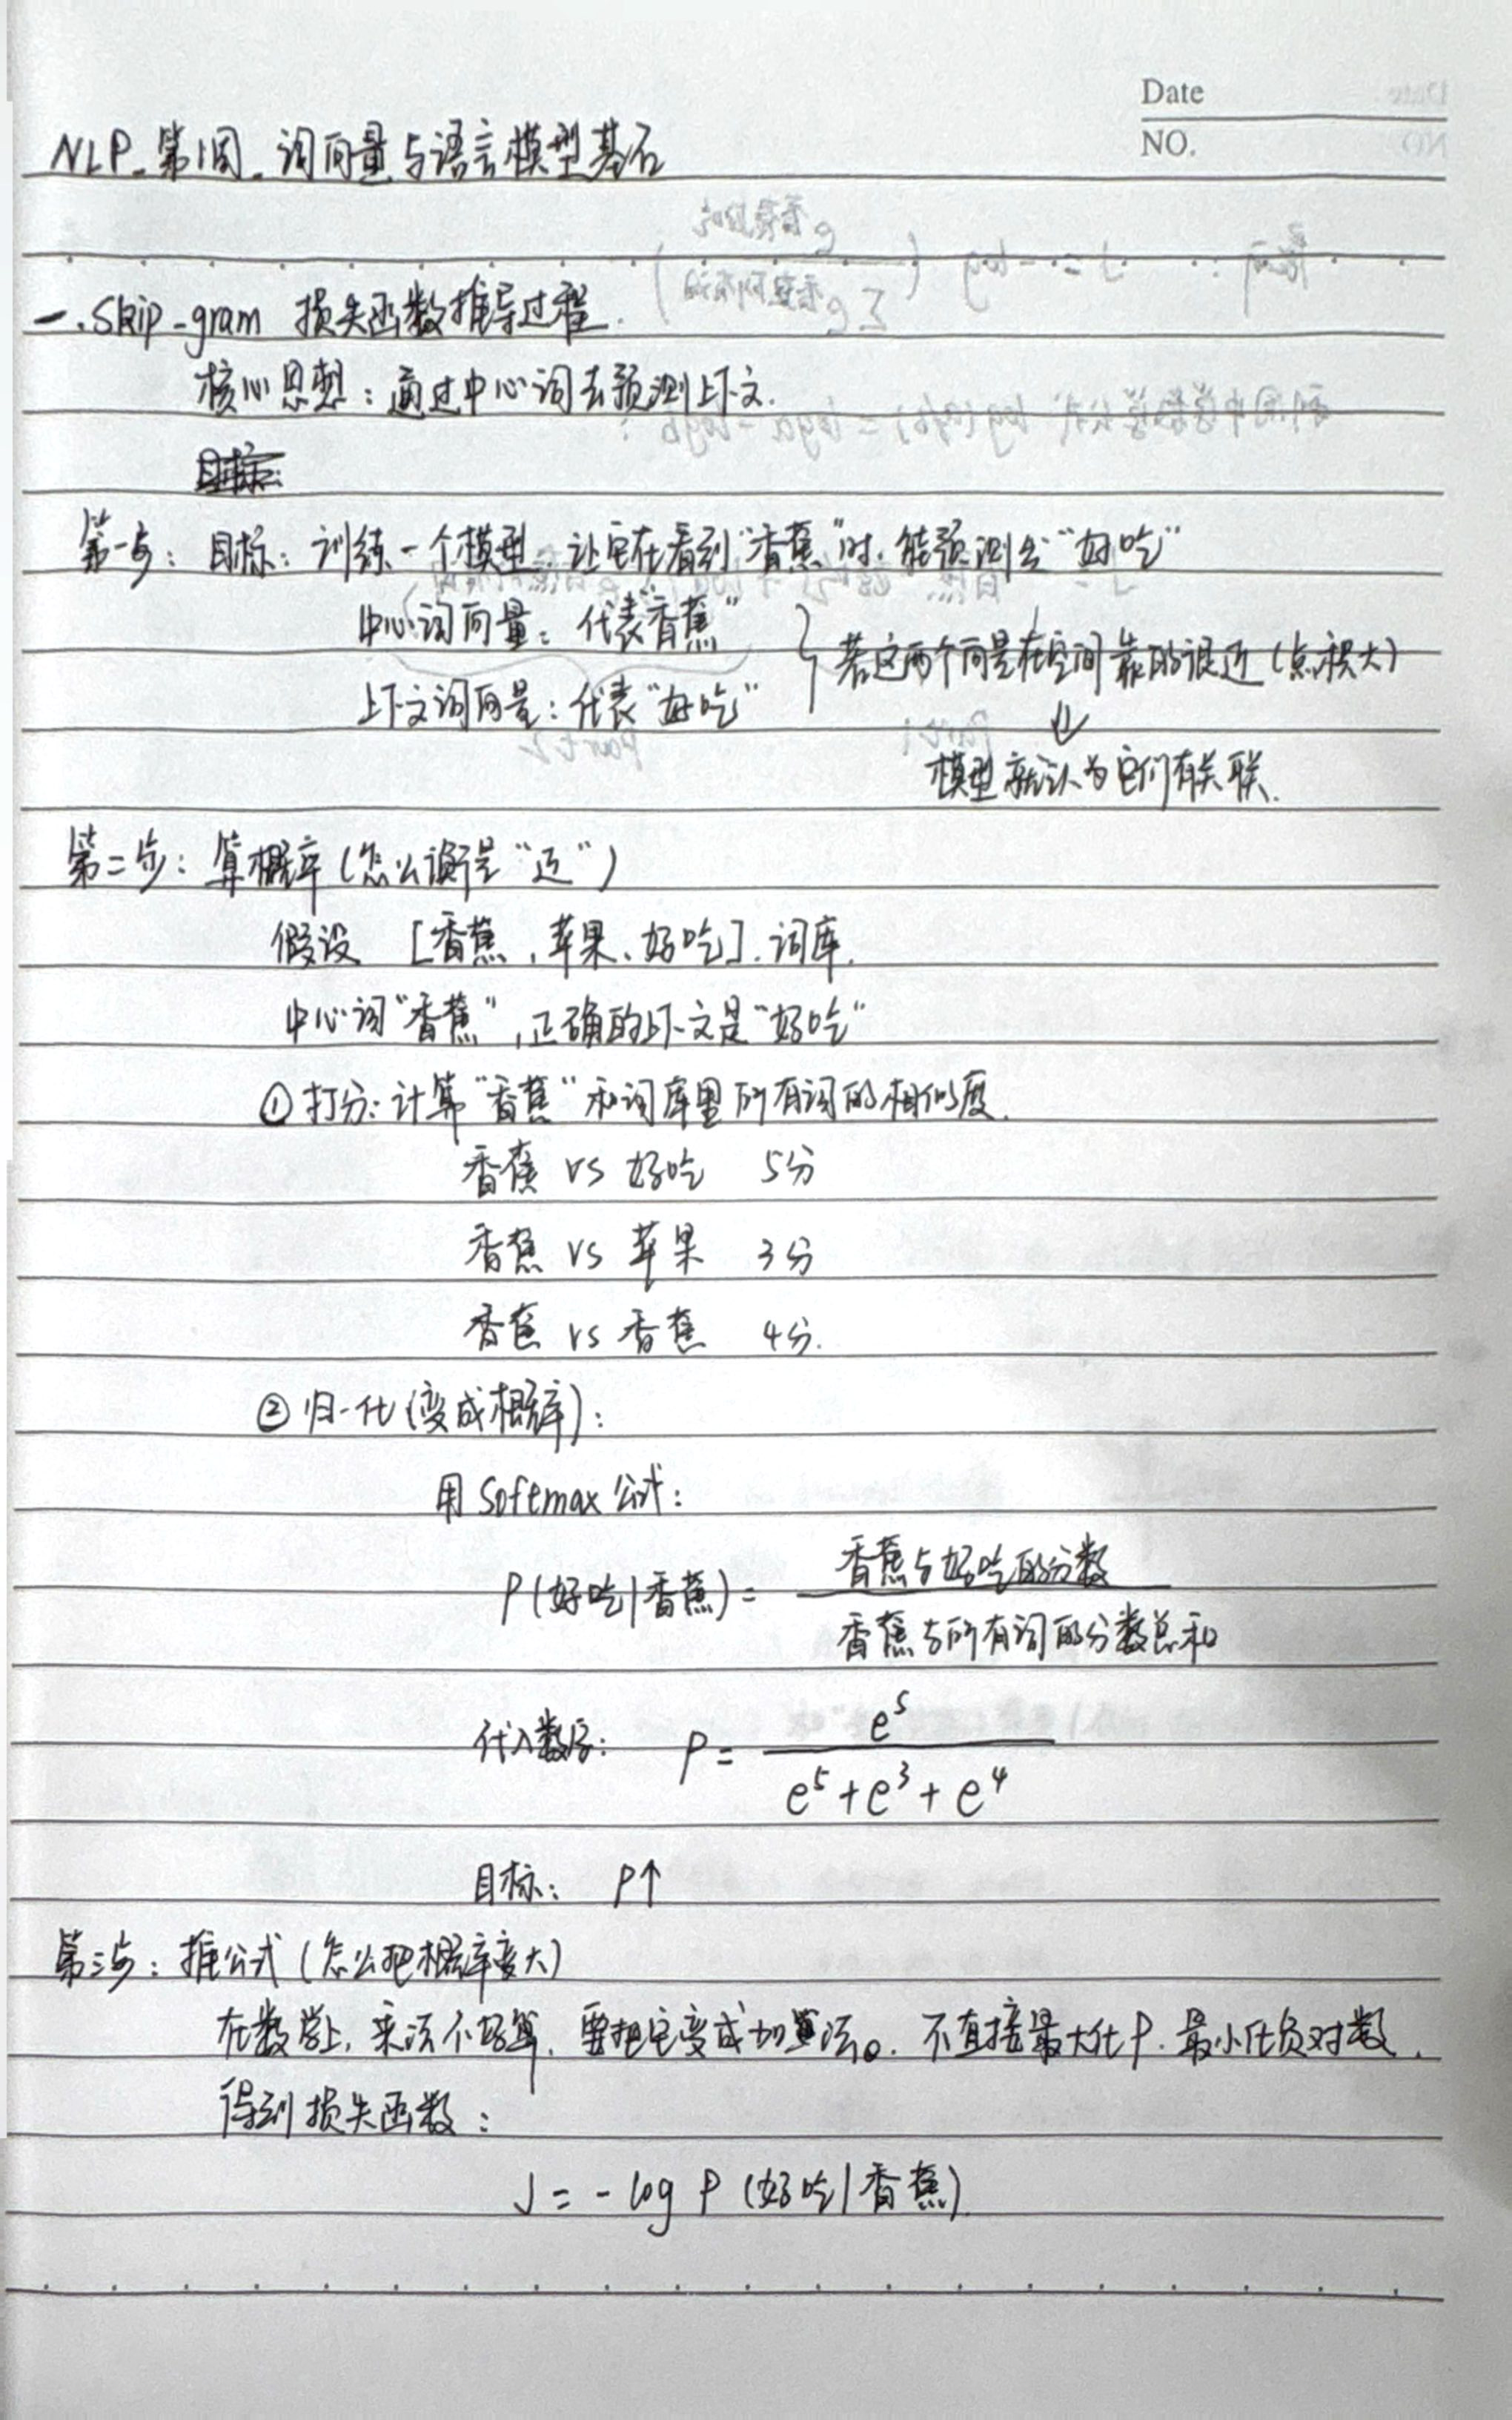 Date
NO.
NLP_第1周_词向量与语言模型基石
一.Skip-gram 损失函数推导过程.
核心思想:通过中心词去预测上下文.
第一步:目标:训练一个模型,让它在看到"香蕉"时,能预测出"好吃"
中心词向量:代表"香蕉"
上下文词向量:代表"好吃"
若这两个向量在空间靠的很近(点积大)
↓
模型就认为它们有关联.
第二步:算概率(怎么衡量"近")
假设 [香蕉,苹果、好吃].词库.
中心词"香蕉",正确的上下文是"好吃"
①打分:计算"香蕉"和词库里所有词的相似度.
香蕉 vs 好吃 5分
香蕉 vs 苹果 3分
香蕉 vs 香蕉 4分.
②归一化(变成概率):
用Softmax公式:
P(好吃|香蕉)= 香蕉与好吃的分数
香蕉与所有词的分数总和
代入数字: P= e^5
e^5+e^3+e^4
目标: P↑
第三步:推公式(怎么把概率变大)
在数学上,乘法不好算,要把它变成加法。不直接最大化P.最小化负对数.
得到损失函数:
J=-log P(好吃|香蕉)